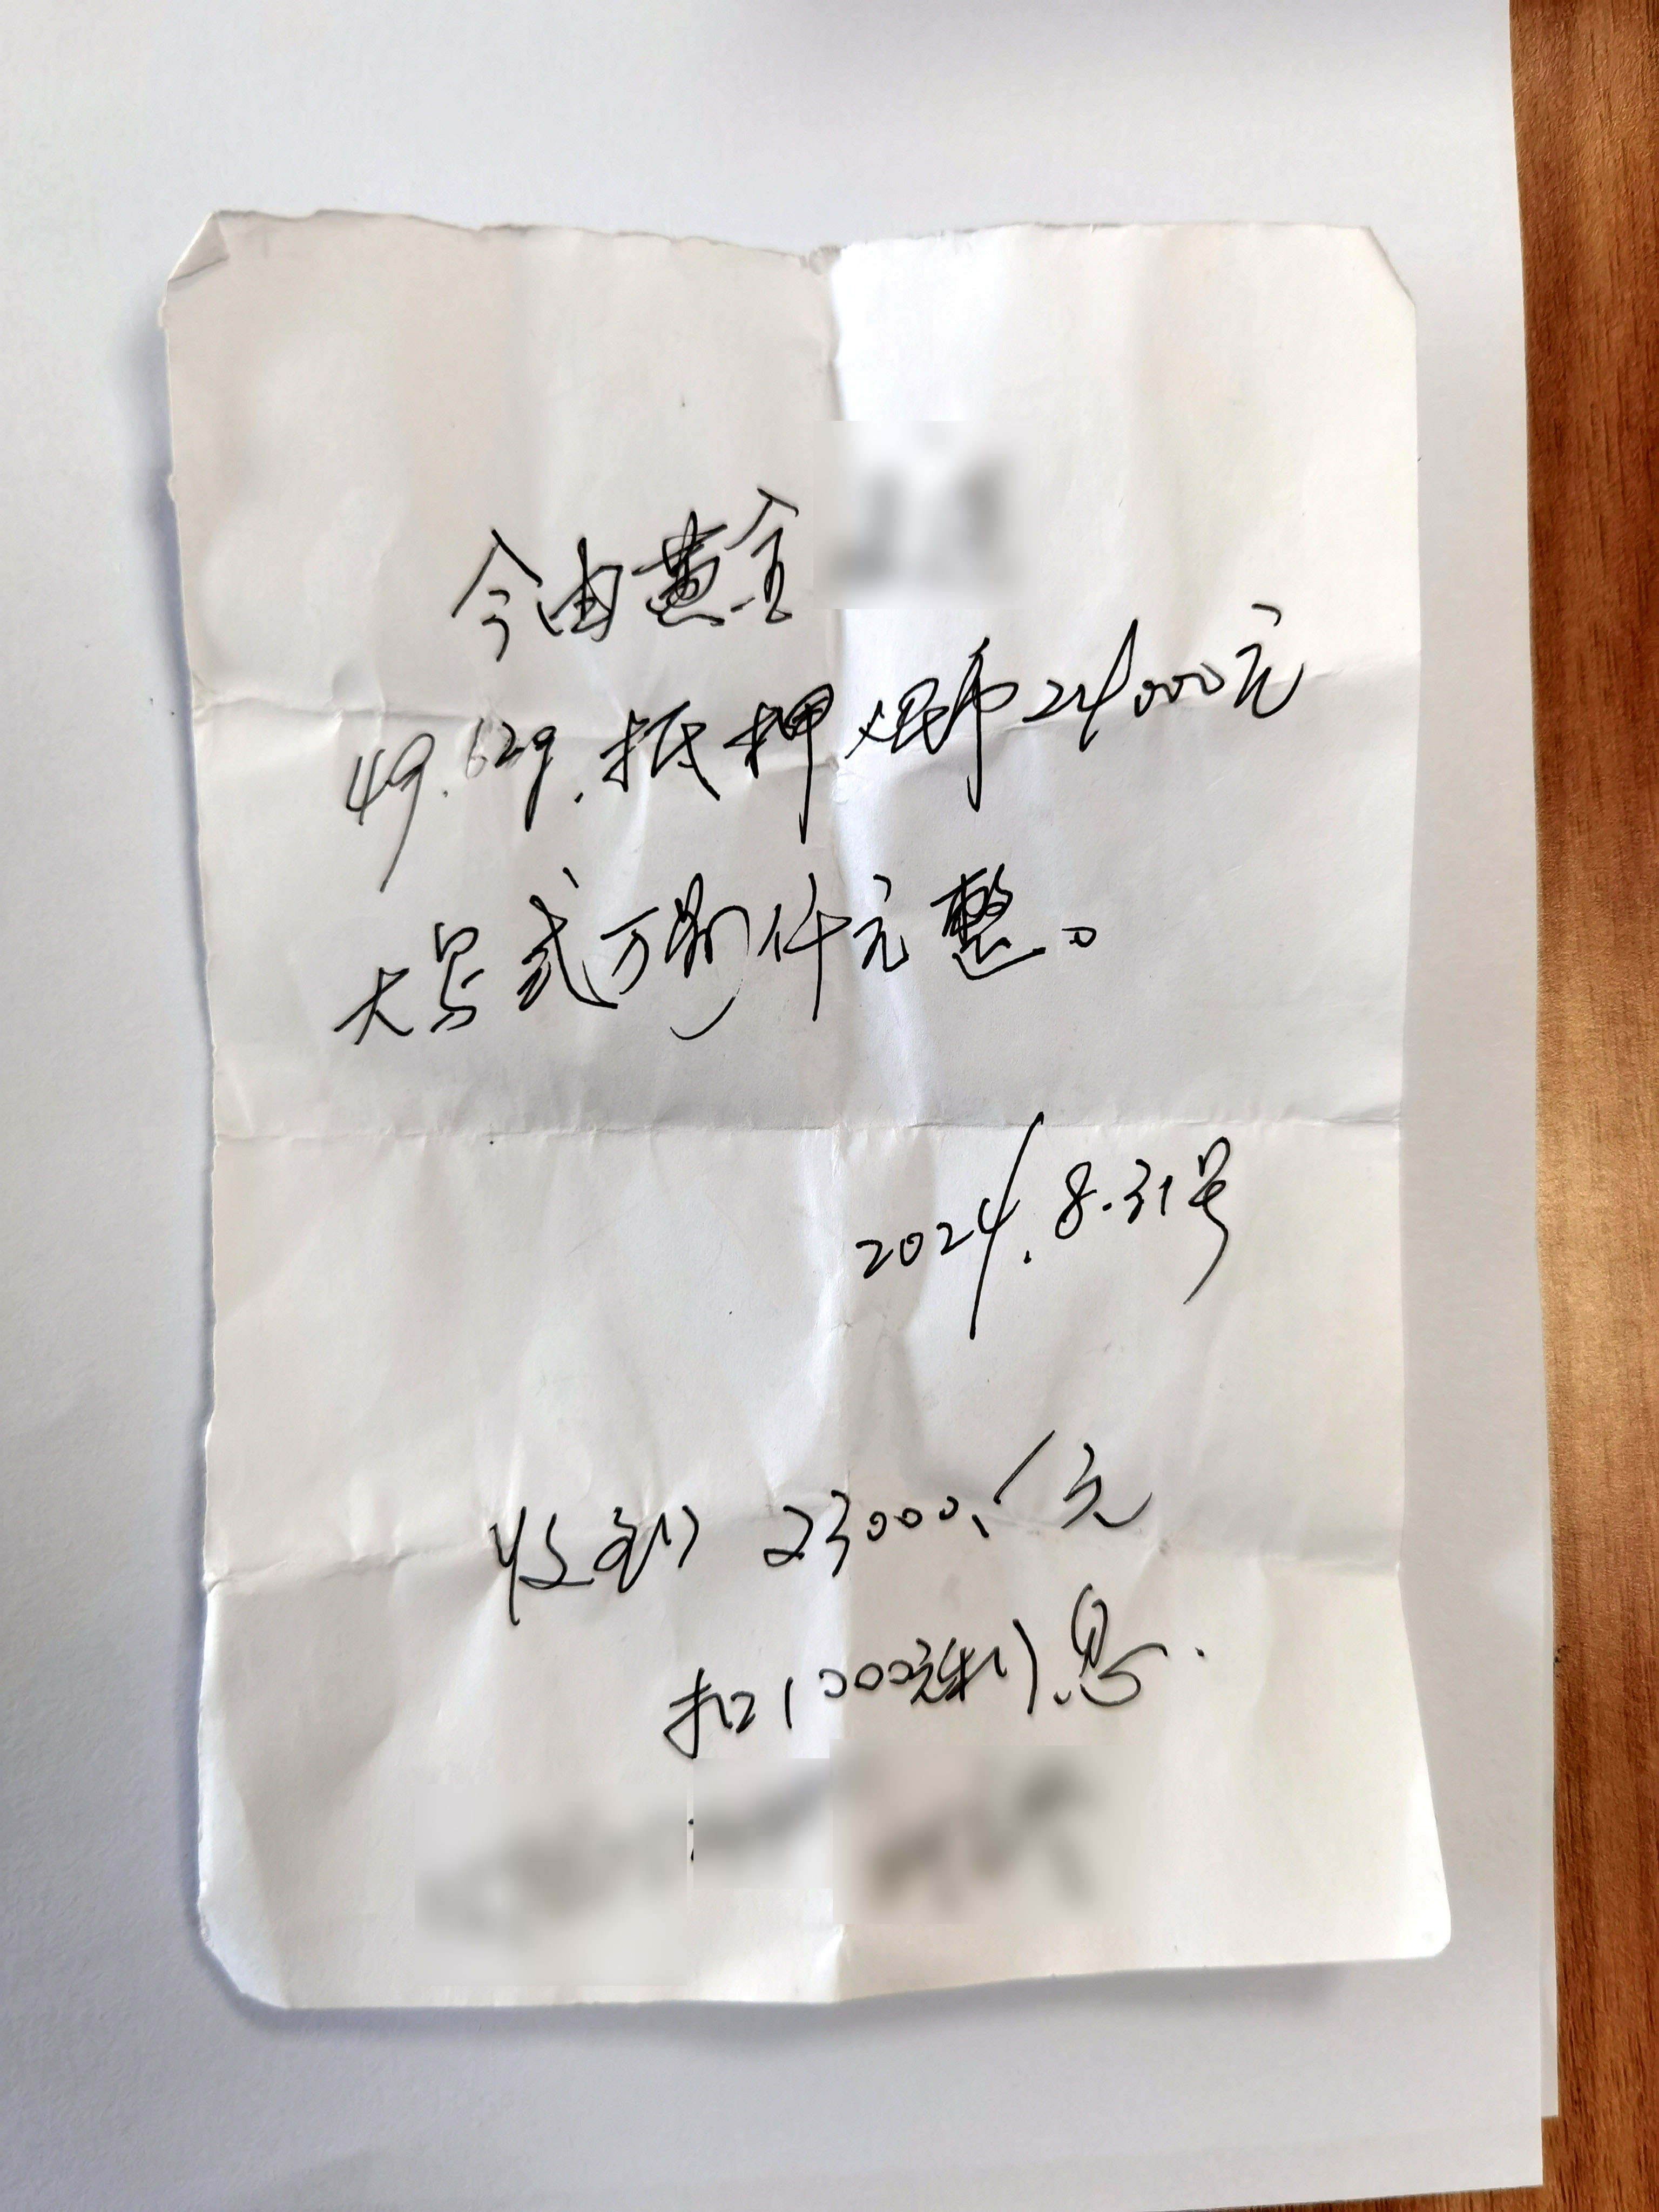 今由黄金
49.62g.抵押人民币24000元
大写贰万肆仟元整。
2024.8.31号
收到23000.元
扣1000元利息.